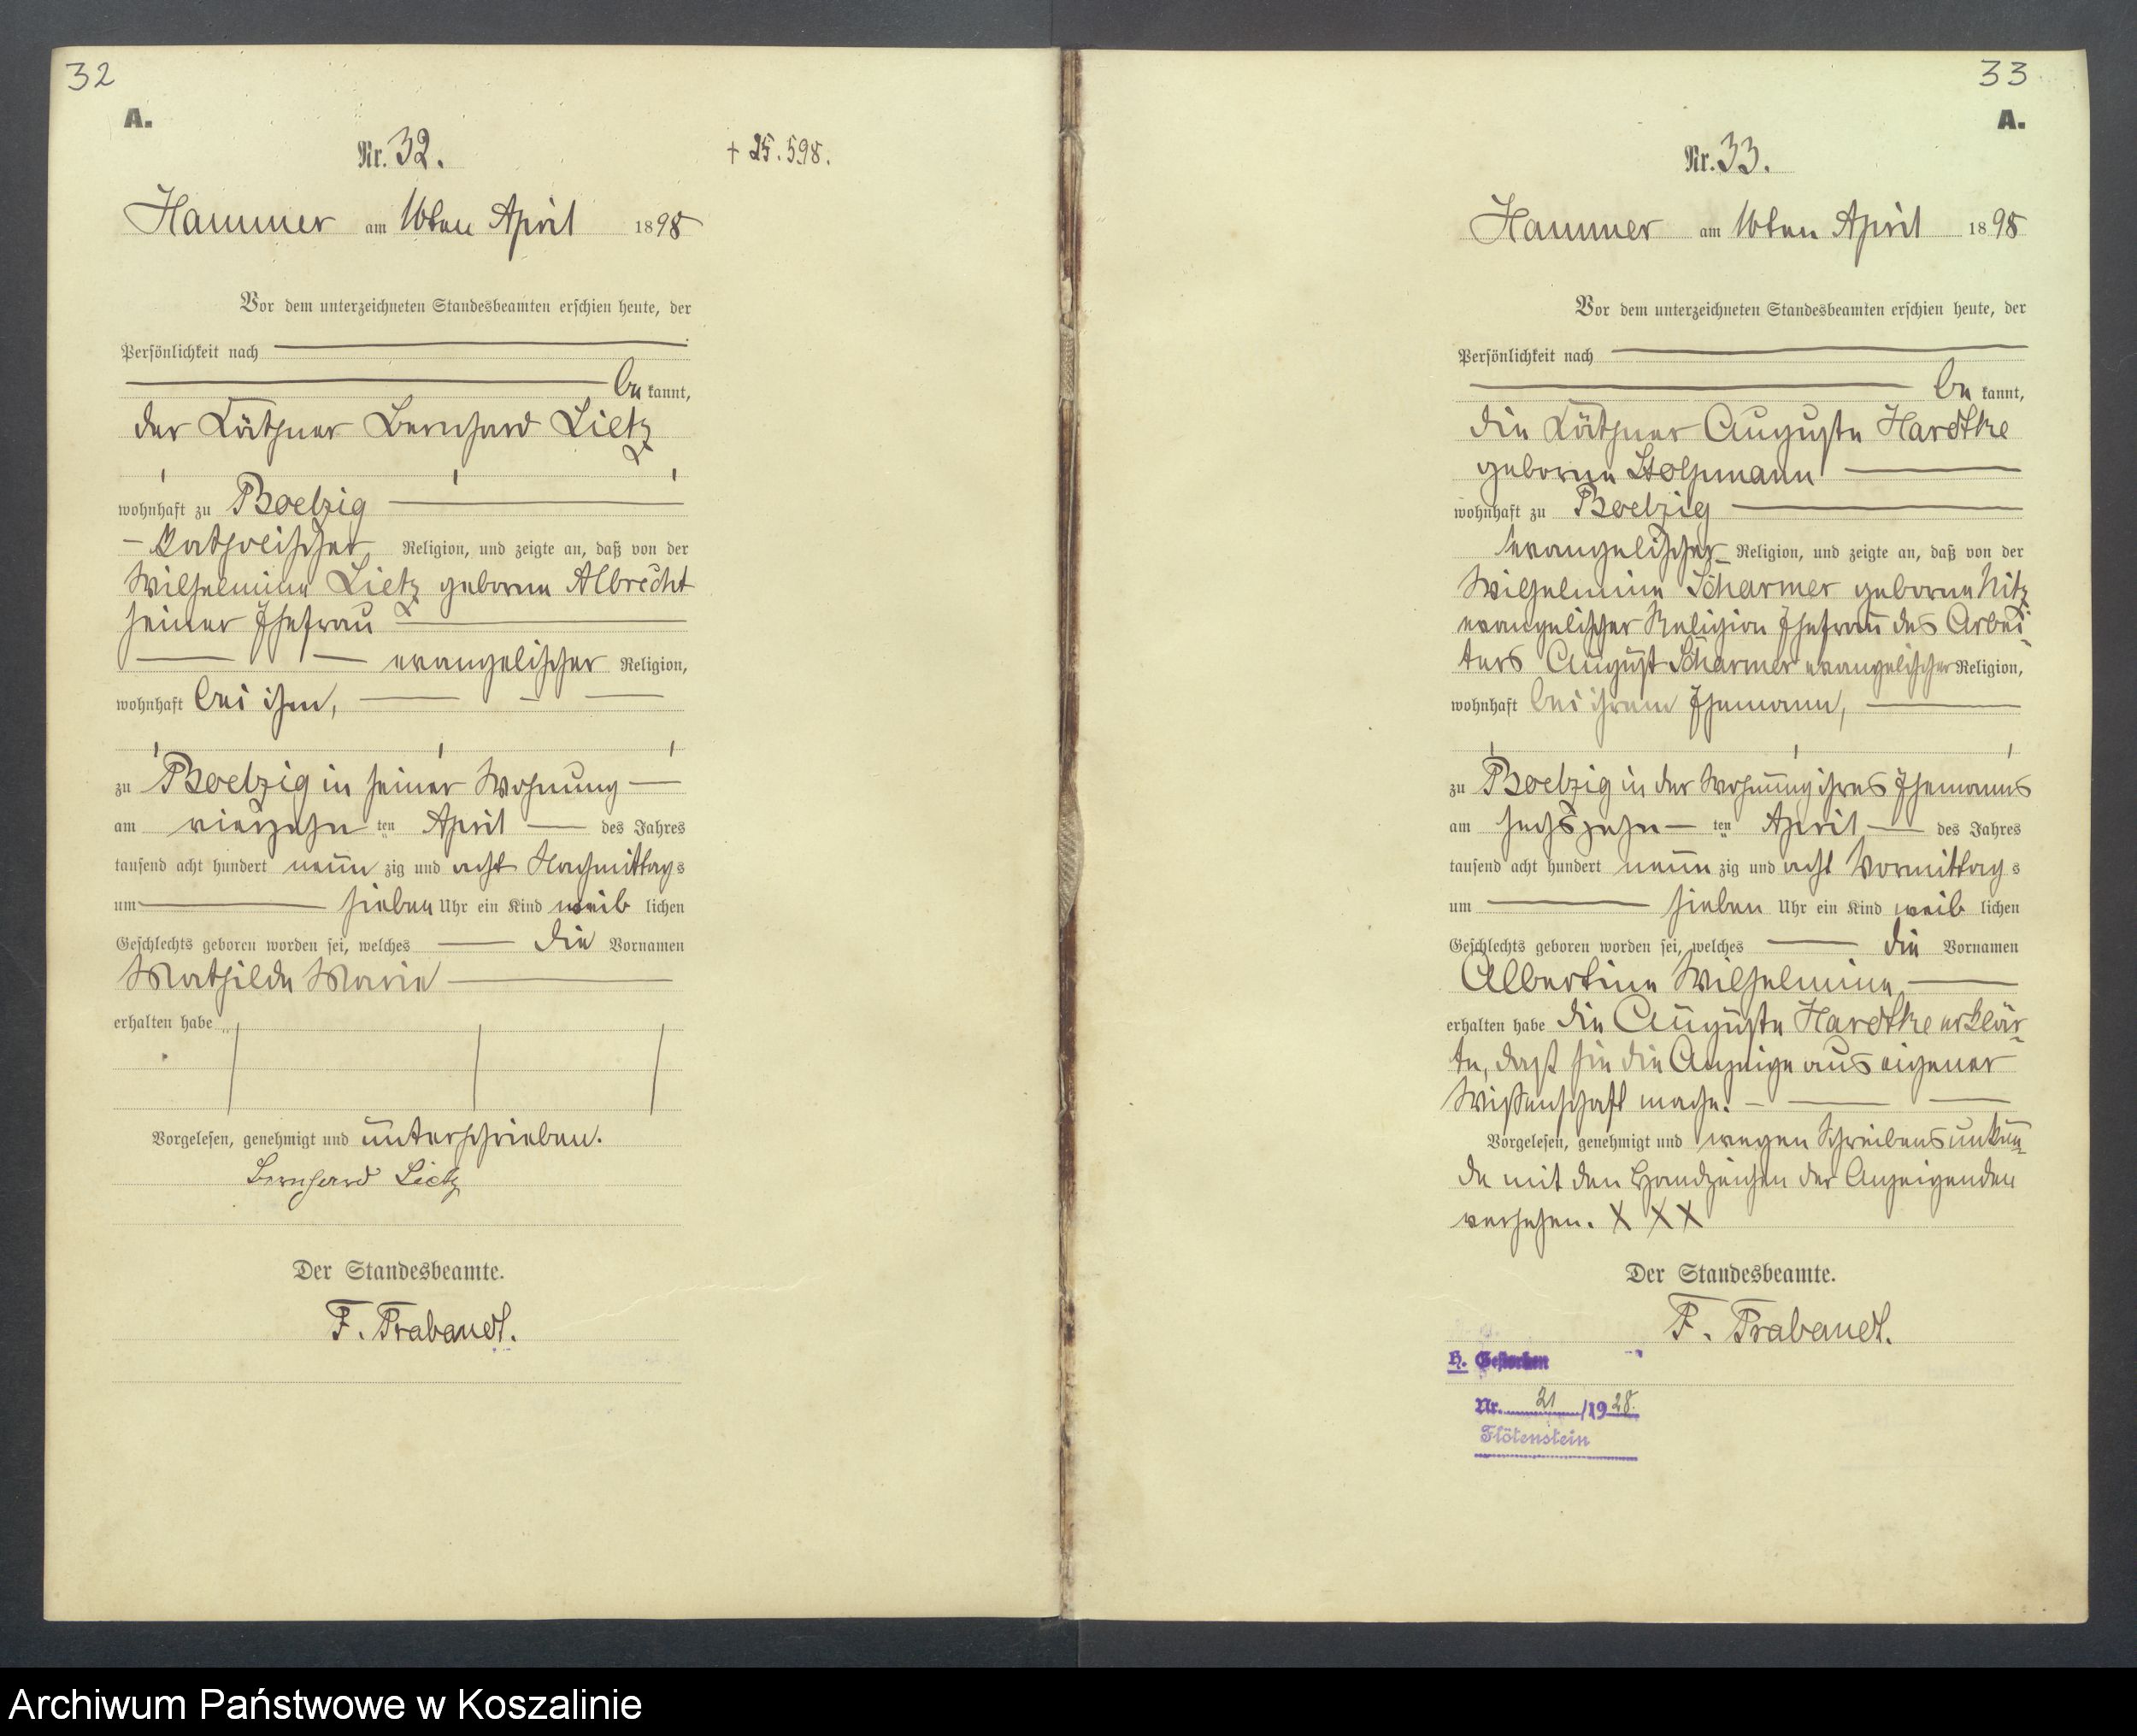 32
A.
Nr. 32.
† 25.5.98.
Hammer am 16ten April 1898
Vor dem unterzeichneten Standesbeamten erschien heute, der
Persönlichkeit nach
be kannt,
der Käthner Bernhard Lietz
wohnhaft zu Boelzig
katholischer Religion, und zeigte an, daß von der
Wilhelmine Lietz geborne Albrecht
seiner Ehefrau
evangelischer Religion,
wohnhaft bei ihm,
zu Boelzig in seiner Wohnung
am vierzehn ten April des Jahres
tausend acht hundert neun zig und acht Nachmittag s
um sieben Uhr ein Kind weib lichen
Geschlechts geboren worden sei, welches die Vornamen
Mathilde Marie
erhalten habe
Vorgelesen, genehmigt und unterschrieben.
Bernhard Lietz
Der Standesbeamte.
F. Trabandt.
33
A.
Nr. 33.
Hammer am 16ten April 1898
Vor dem unterzeichneten Standesbeamten erschien heute, der
Persönlichkeit nach
be kannt,
die Käthner Auguste Hardtke
geborne Stolpmann
wohnhaft zu Boelzig
evangelischer Religion, und zeigte an, daß von der
Wilhelmine Scharmer geborne Nitz
evangelischer Religion Ehefrau des Arbei-
ters August Scharmer evangelischer Religion,
wohnhaft bei ihrem Ehemann,
zu Boelzig in der Wohnung ihres Ehemanns
am sechszehn ten April des Jahres
tausend acht hundert neun zig und acht Vormittag s
um sieben Uhr ein Kind weib lichen
Geschlechts geboren worden sei, welches die Vornamen
Albertine Wilhelmine
erhalten habe die Auguste Hardtke erklär-
te, daß sie die Anzeige aus eigener
Wissenschaft mache.
Vorgelesen, genehmigt und wegen Schreibensunkun-
de mit den Handzeichen der Anzeigenden
versehen. X X X
Der Standesbeamte.
F. Trabandt.
H. Gestorben
Nr. 21 /1928.
Flötenstein
Archiwum Państwowe w Koszalinie